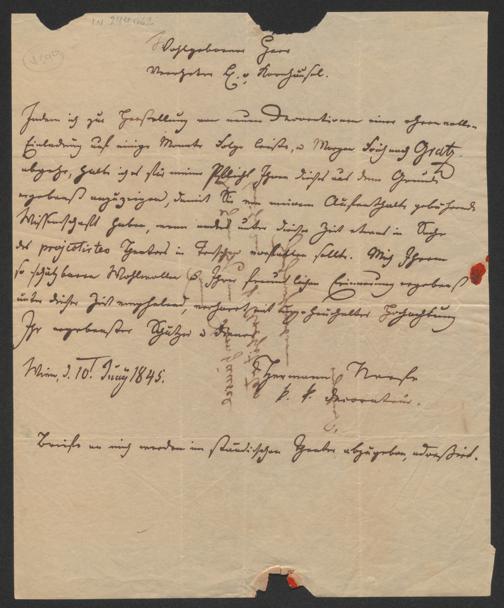 Wohlgeborner Herr
Verehrter H. v.
Indem ich zur Herstellung von neuen Decorationen einer ehrenvollen
Einladung auf einige Monate Folge leiste, u Morgen Früh nach Gratz
abgehe, halte ich es für meine Pflicht Ihnen dieses aus dem Grunde
ergebenst anzuzeigen, damit Sie von meinem Aufenthalte gehörende
Wissenschaft haben, wenn anders über diese Zeit etwas in Sache
des projectirten Theaters in vorfallen sollte. Mich Ihrem
so schätzbaren Wohlwollen u Ihrer freundlichen Erinnerung ergebenst
über diese Zeit empfehlend, verharre mit Hochachtung
Ihr ergebenster Schätzer u Diener
Wien, d. 10t Juny 1845.
Hermann Neefe
k. k. Decorateur.
Briefe an mich werden im ständischen Theater abzugeben, adressirt.